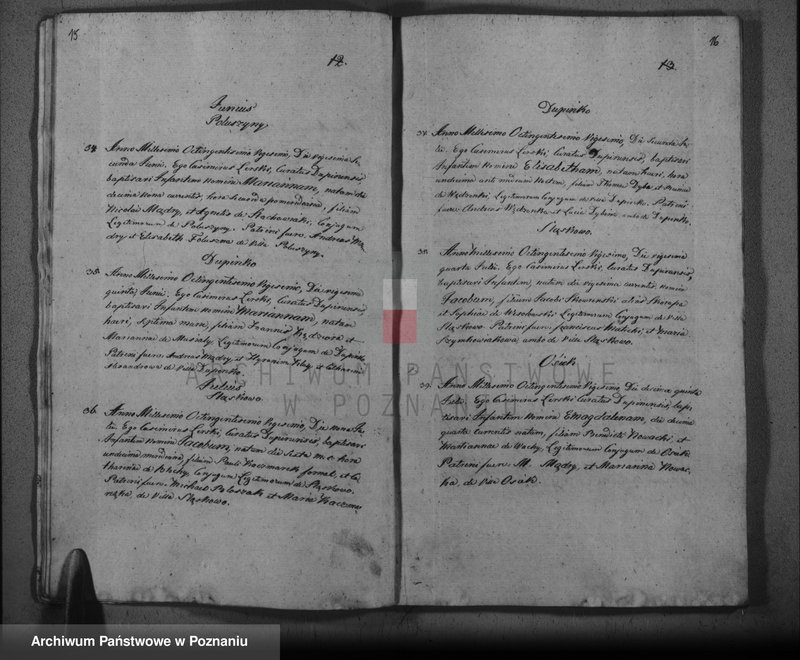 15
12.
Junius
Poluszyny
34. Anno Millesimo Octingentesimo Vigesimo, Die vigesima Se-
cunda Junii. Ego Casimirus Lirski, Curatus Dupinensis,
baptisavi Infantem Nomine Mariannam, natam die
decima Nona currentis, hora Secunda pomeridiana, filiam
Nicolai Mądry, et Agnetis de Stachowski, Conjugum
Legitimorum de Poluszyny. Patrini fuere Andreas Mą-
dry et Elisabeth Foluszna de Villa Poluszyny.
Dupinko
35. Anno Millesimo Octingentesimo Vigesimo, Die vigesima
quinta, Junii. Ego Casimirus Lirski, Curatus Dupinensis,
baptisavi Infantem Nomine Mariannam, natam
heri, Septima mane, filiam Joannis et
Mariannae de Musialy Legitimorum Conjugum de Dupinko
Patrini fuere Andreas Mądry, et et Catharina
de Villa Dupinko.
Julius
Słąskowo.
36. Anno Millesimo Octingentesimo Vigesimo, Die Nona Ju-
lii. Ego Casimirus Lirski, Curatus Dupinensis, baptisavi
Infantem Nomine Jacobum, natum die Sexta m. c. hora
undecima meridiana, filium Pauli Kaczmarek et Ca-
tharinae de Conjugum Legitimorum de Słąskowo.
Patrini fuere Michael et Maria Kaczma-
rzka, de Villa Słąskowo.
16
13.
Dupinko
37. Anno Millesimo Octingentesimo Vigesimo, Die Secunda Ju-
lii. Ego Casimirus Lirski, Curatus Dupinensis, baptisavi
Infantem Nomine Elisabetham, natam heri, hora
undecima ante mediam Noctem, filiam Thomae Dyba et
de Legitimorum Conjugum de Villa Dupinko. Patrini
fuere Andreas et Lucia ambo de Dupinko.
Słąskowo.
38. Anno Millesimo Octingentesimo Vigesimo, Die vigesima
quarta Julii. Ego Casimirus Lirski, Curatus Dupinensis,
baptisavi Infantem, natum die vigesima currentis Nomine
Jacobum, filium Jacobi alias
et Sophiae de Legitimorum Conjugum de Villa
Słąskowo. Patrini fuere Franciscus et Maria
ambo de Villa Słąskowo.
Osiek
39. Anno Millesimo Octingentesimo Vigesimo, Die decima quinta
Julii. Ego Casimirus Lirski Curatus Dupinensis, bap-
tisavi Infantem Nomine Magdalenam, die decima
quarta currentis natam, filiam Benedicti Nowacki et
Mariannae de Legitimorum Conjugum de Osiek
Patrini fuere M. Mądry, et Marianna Nowac-
ka, de Villa Osiek.
ARCHIWUM PAŃSTWOWE
W POZNANIU
Archiwum Państwowe w Poznaniu